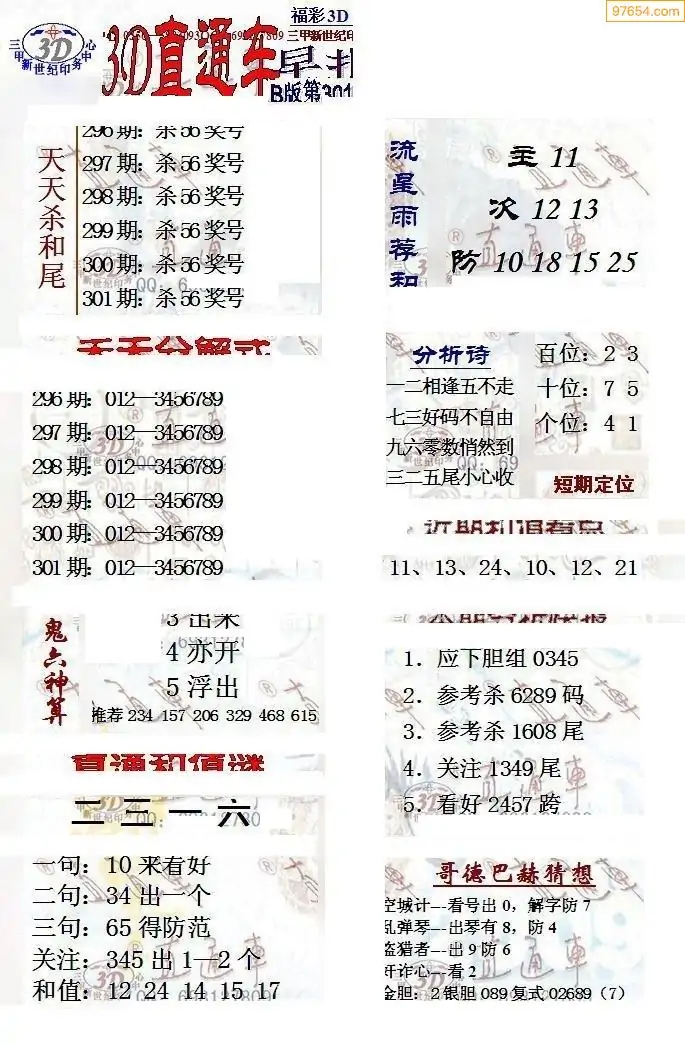 97654.com
福彩3D
三甲新世纪印务中心
3D
3D直通车
三甲新世纪印
早报
B版第301
天天杀和尾
296期：杀56奖号
297期：杀56奖号
298期：杀56奖号
299期：杀56奖号
300期：杀56奖号
301期：杀56奖号
流星雨荐和
主 11
次 12 13
防 10 18 15 25
天天分解式
296期：012—3456789
297期：012—3456789
298期：012—3456789
299期：012—3456789
300期：012—3456789
301期：012—3456789
分析诗
一二相逢五不走
七三好码不自由
九六零数悄然到
三二五尾小心收
百位：2 3
十位：7 5
个位：4 1
短期定位
近期和值看点
11、13、24、10、12、21
鬼六神算
3 出来
4 亦开
5 浮出
推荐 234 157 206 329 468 615
1．应下胆组 0345
2．参考杀 6289 码
3．参考杀 1608 尾
4．关注 1349 尾
5．看好 2457 跨
直通和值谜
二三一六
一句：10 来看好
二句：34 出一个
三句：65 得防范
关注：345 出 1—2 个
和值：12 24 14 15 17
哥德巴赫猜想
空城计---看号出 0，解字防 7
乱弹琴---出琴有 8，防 4
盗猎者---出 9 防 6
奸诈心---看 2
金胆：2 银胆 089 复式 02689（7）